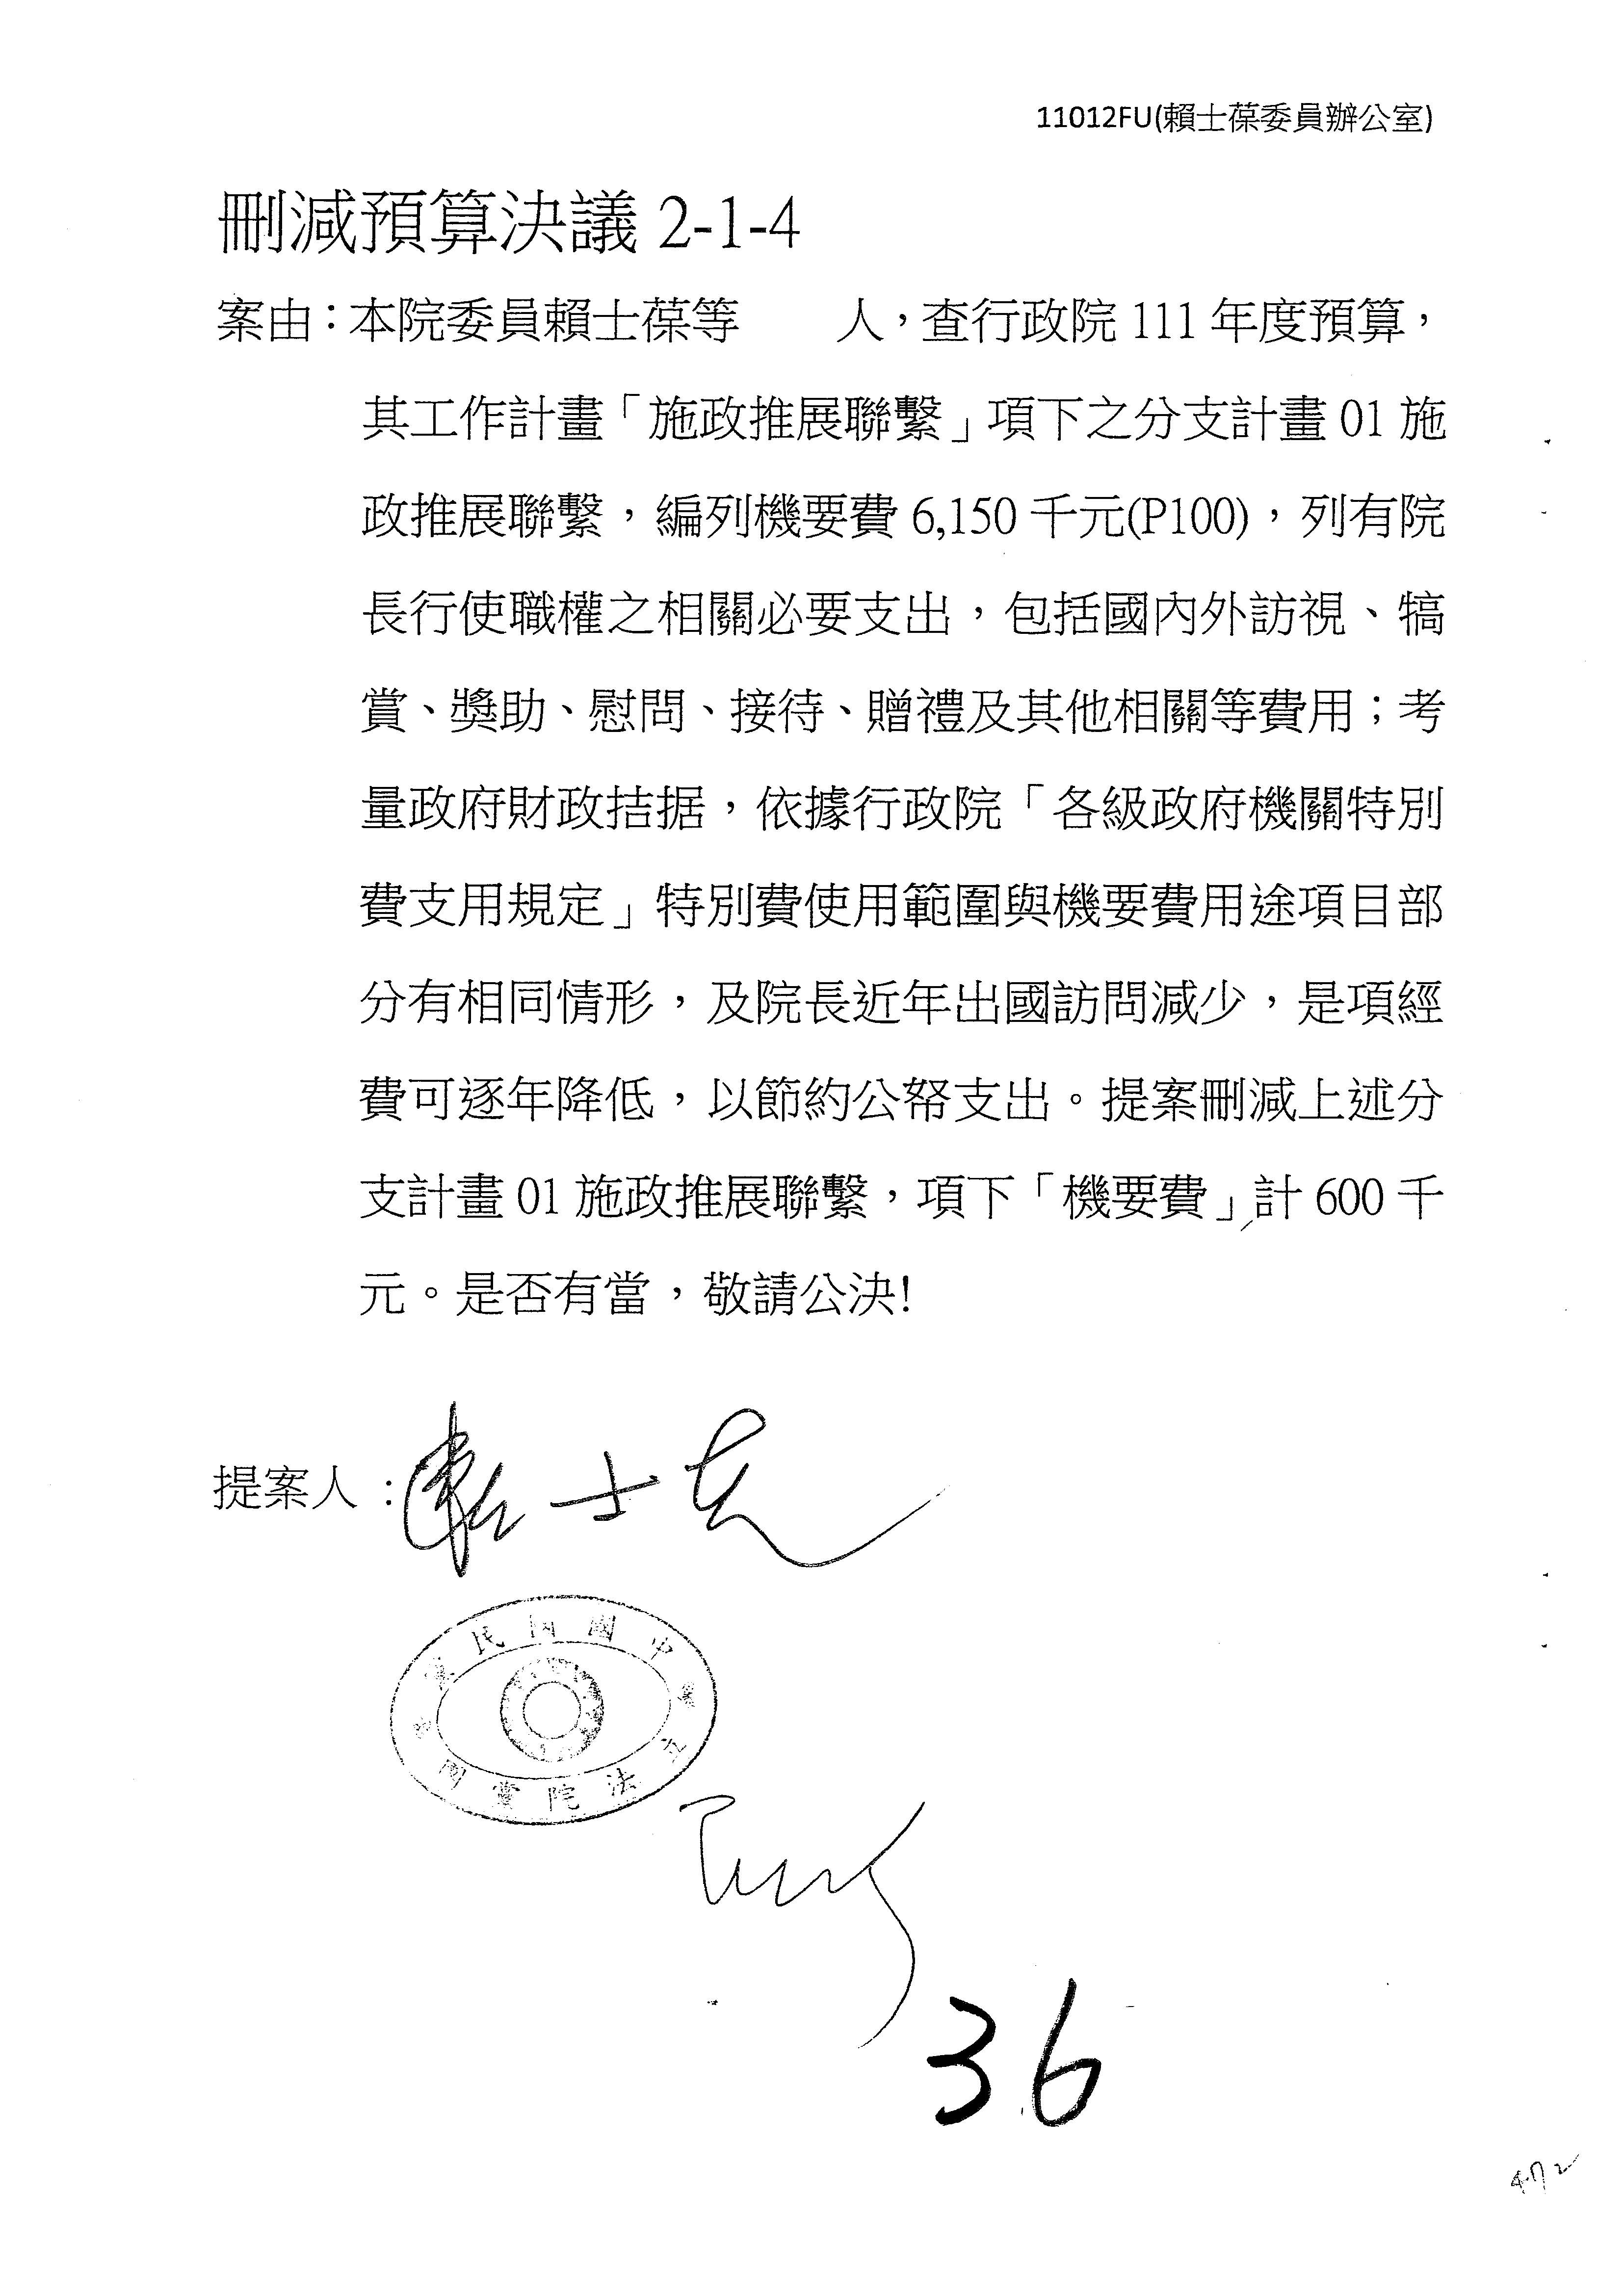 11012FU(賴士葆委員辦公室)
刪減預算決議 2-1-4
案由：本院委員賴士葆等　　人，查行政院 111 年度預算，
其工作計畫「施政推展聯繫」項下之分支計畫 01 施
政推展聯繫，編列機要費 6,150 千元(P100)，列有院
長行使職權之相關必要支出，包括國內外訪視、犒
賞、獎助、慰問、接待、贈禮及其他相關等費用；考
量政府財政拮据，依據行政院「各級政府機關特別
費支用規定」特別費使用範圍與機要費用途項目部
分有相同情形，及院長近年出國訪問減少，是項經
費可逐年降低，以節約公帑支出。提案刪減上述分
支計畫 01 施政推展聯繫，項下「機要費」計 600 千
元。是否有當，敬請公決!
提案人：賴士葆
中國國民黨
立法院黨團
36
472